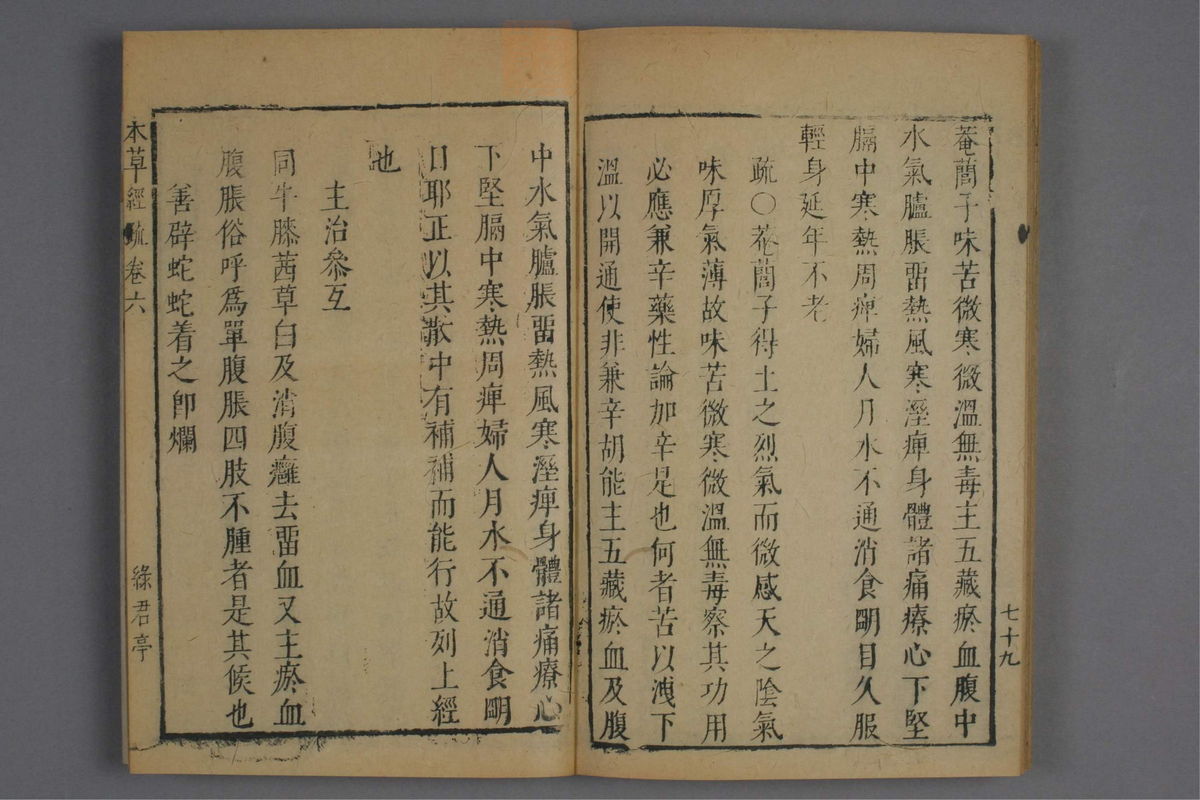 菴䕡子味苦微寒微溫無毒主五藏瘀血腹中
水氣臚脹畱熱風寒溼痺身體諸痛療心下堅
膈中寒熱周痺婦人月水不通消食朙目久服
輕身延年不老
疏○菴䕡子得土之烈氣而微感天之陰氣
味厚氣薄故味苦微寒微溫無毒察其功用
必應兼辛藥性論加辛是也何者苦以洩下
溫以開通使非兼辛胡能主五藏瘀血及腹
七十九
中水氣臚脹畱熱風寒溼痺身體諸痛療心
下堅膈中寒熱周痺婦人月水不通消食朙
目耶正以其散中有補補而能行故列上經
也
主治參互
同牛膝茜草白及消腹癰去畱血又主瘀血
腹脹俗呼爲單腹脹四肢不腫者是其候也
善辟蛇蛇着之卽爛
本草經疏卷六
綠君亭